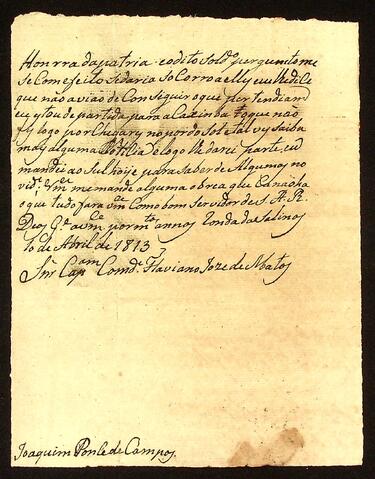 Honrra da patria e o dito sold.o perguntome
se Com efeito sedaria so Corro a elly eu lhe diCe
que não avião de Con Seguir o que pertendiam
eu estou de partida para a Caximba
logo por Chegar y no por do Sol e tal vy saiba
may alguma Notisia e logo lhe darei parte, eu
mandei ao Sul hoije para saber de Algumas no
vid.es VmCe me mande alguma obrea que Ca não ha
o que tudo fara VmCe Como bom Servidor de S. A. R.
Deos G.e a VmCe por m.tos annos Ronda das Selinas
10 de Abril de 1813
Snr. Cap.am Com.de Flaviano Joze de Matos
Joaquim Ponse de Campos